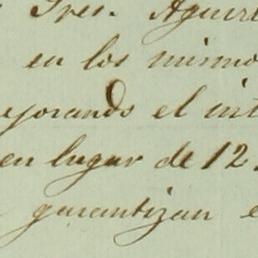 Sres. Aguirre
en los mismo
ejorando el int
en lugar de 12
garantizan e